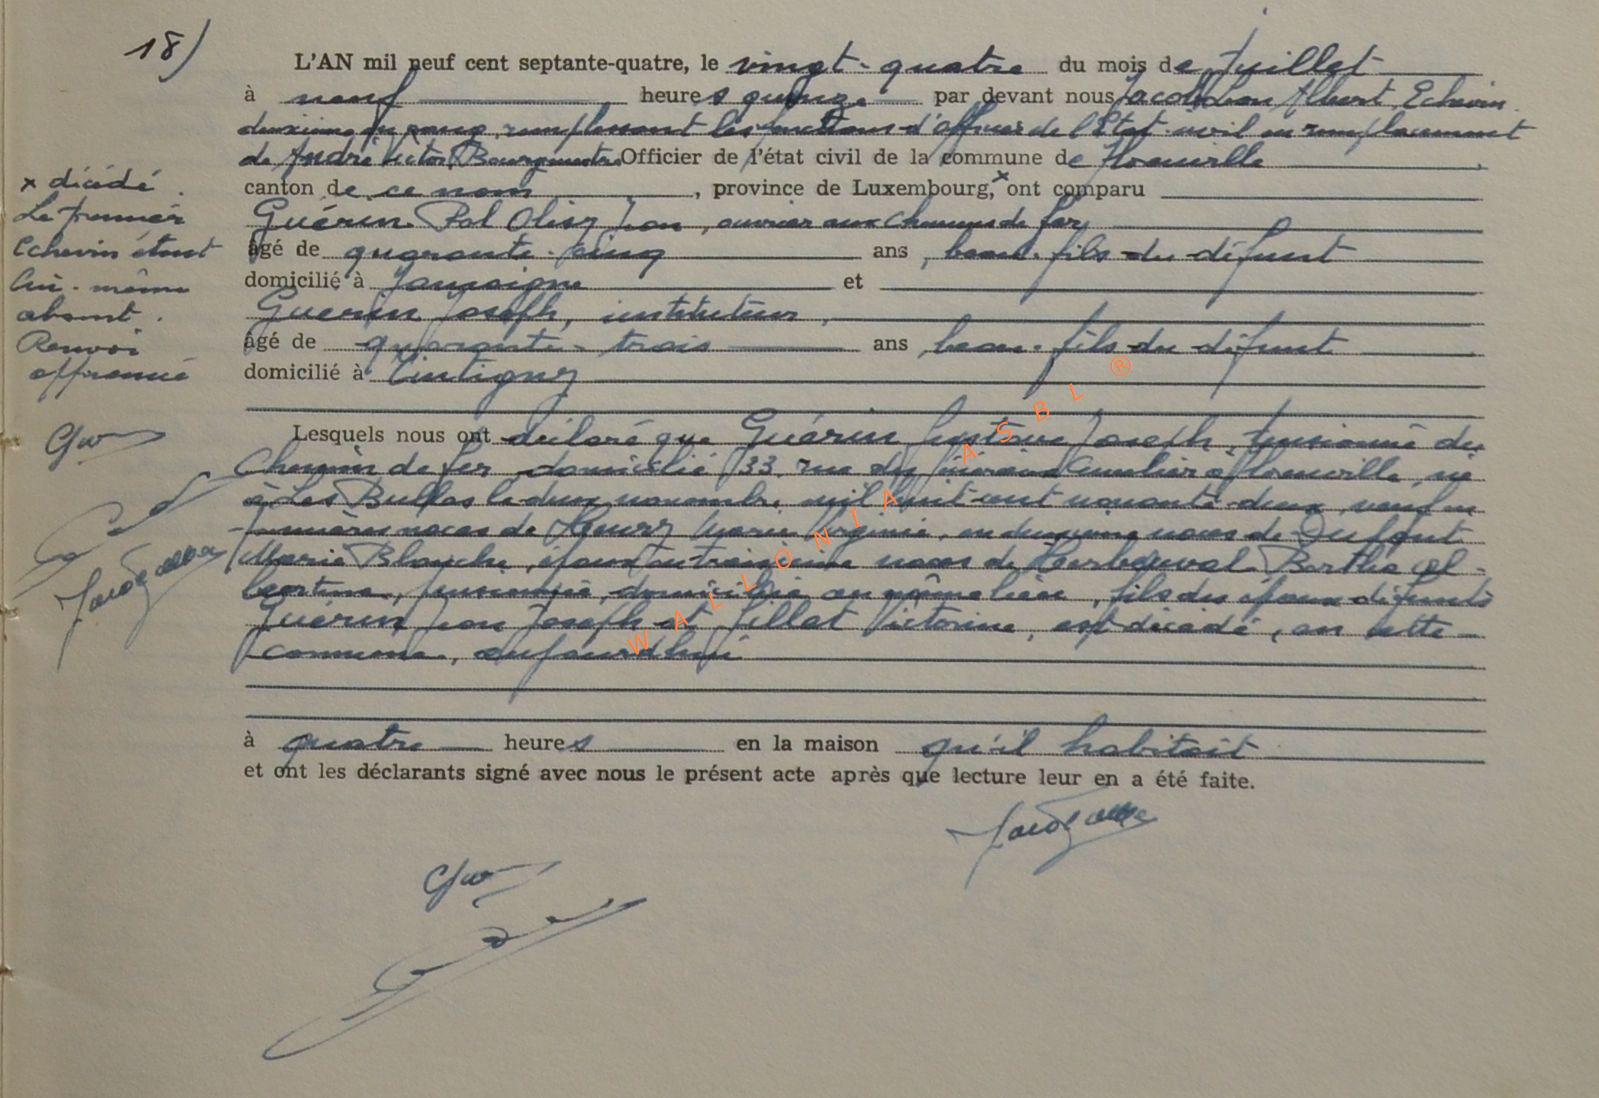 18)
L'AN mil neuf cent septante-quatre, le vingt-quatre du mois de Juillet
à neuf heures quinze par devant nous Jacob Léon Albert, Echevin
deuxième en rang, remplissant les fonctions d'officier de l'Etat civil en remplacement
de André Victor, Bourgmestre Officier de l'état civil de la commune de Florenville
canton de ce nom, province de Luxembourg,x ont comparu
Guérin Pol Olisy Jean, ouvrier aux chemins de fer
âgé de quarante-cinq ans, beau-fils du défunt
domicilié à Jamoigne et
Guerin Joseph, instituteur,
âgé de quarante-trois ans, beau-fils du défunt
domicilié à Tintigny
Lesquels nous ont déclaré que Guérin Gustave Joseph, pensionné du
chemin de fer domicilié 33, rue du à Florenville, né
à Les Bulles le deux novembre mil huit cent nonante-deux, veuf en
premières noces de Marie Virginie, en deuxième noces de Dufont
Marie Blanche, époux en troisième noces de Berthe Al-
bertine, pensionnée, domiciliée au même lieu, fils des époux défunts
Guérin Jean Joseph et Gillet Victorine, est décédé, en cette
commune, aujourd'hui
à quatre heures en la maison qu'il habitait
et ont les déclarants signé avec nous le présent acte après que lecture leur en a été faite.
x décédé.
Le premier
Echevin étant
lui-même
absent.
Renvoi
approuvé
WALLONIA ASBL ®